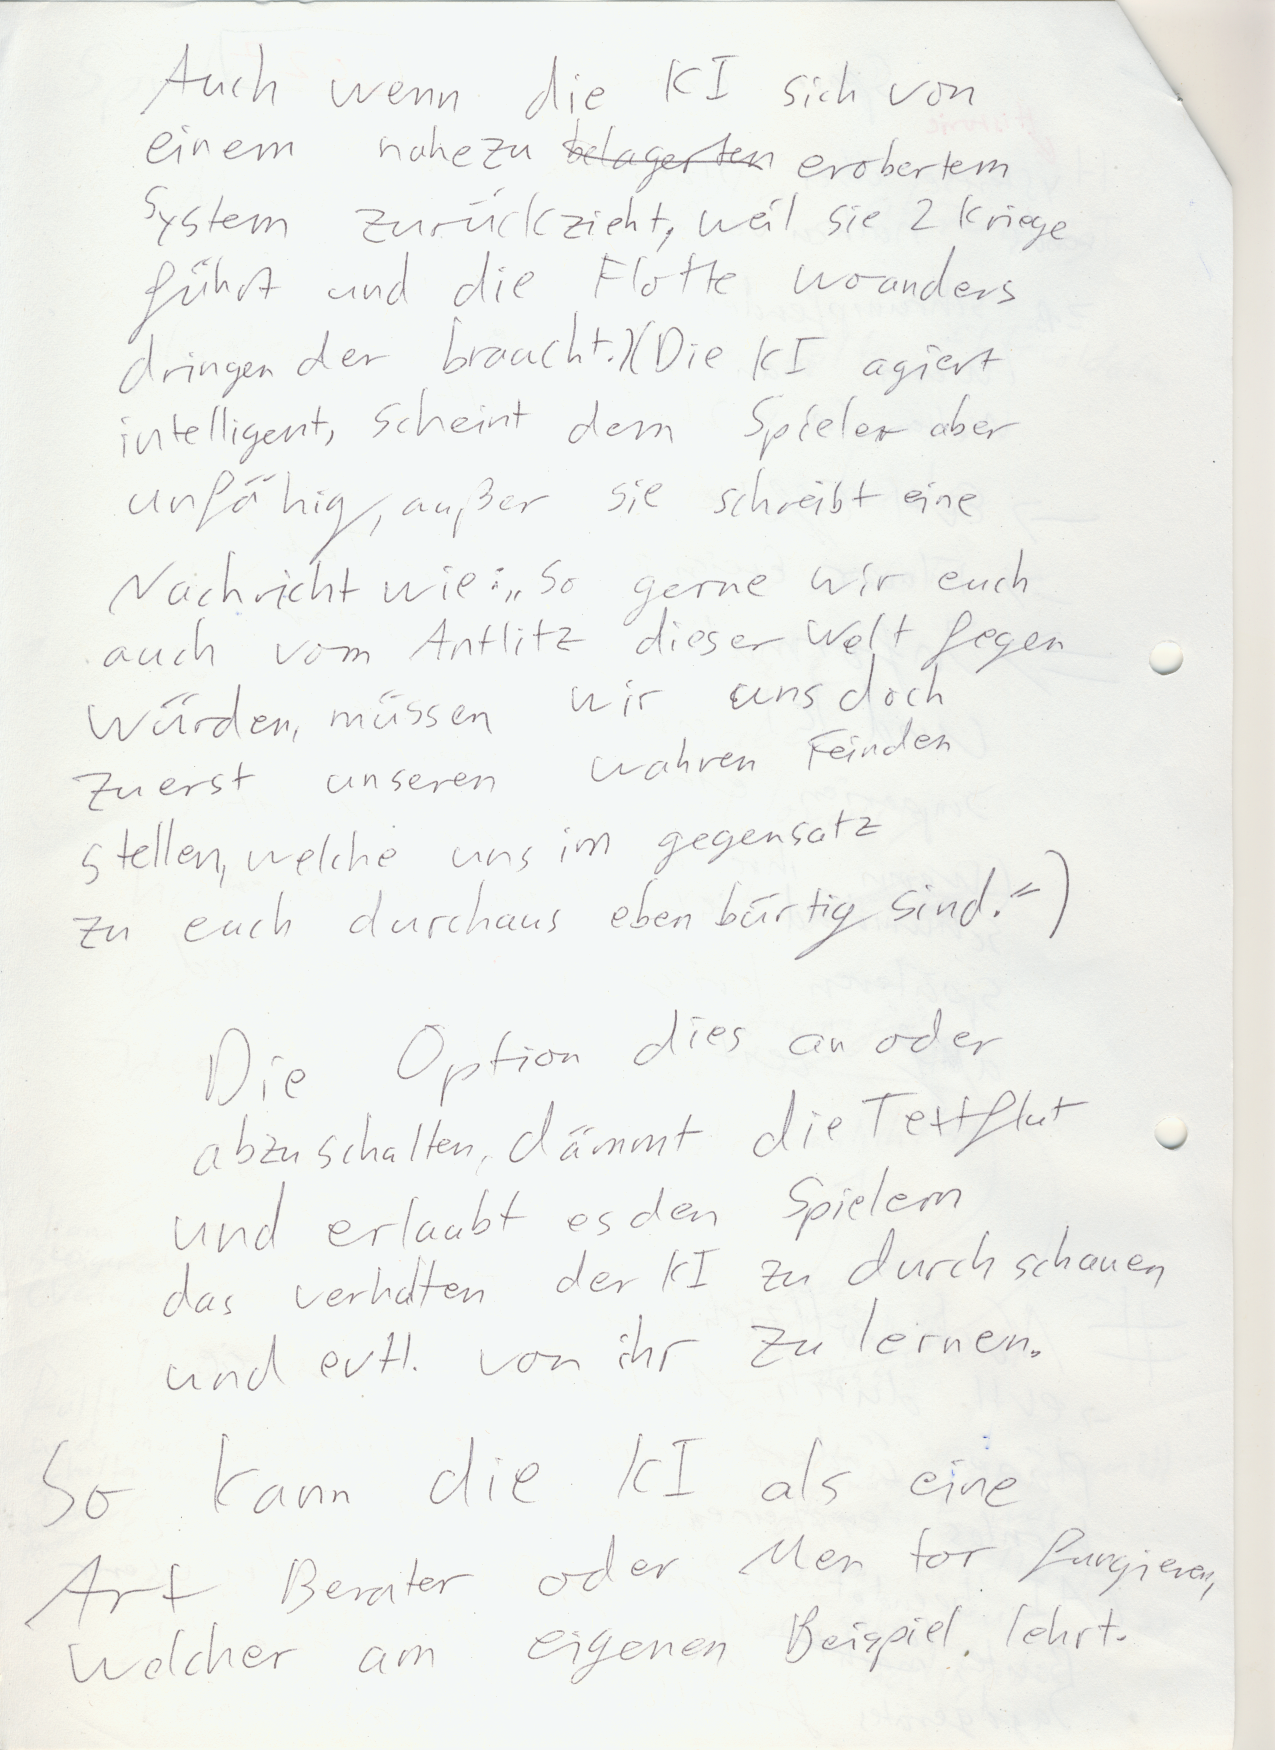 Auch wenn die KI sich von
einem nahezu belagerten erobertem
System zurückzieht, weil sie 2 Kriege
führt und die Flotte woanders
dringender braucht.)(Die KI agiert
intelligent, scheint dem Spieler aber
unfähig, außer sie schreibt eine
Nachricht wie: „So gerne wir euch
auch vom Antlitz dieser Welt fegen
würden, müssen wir uns doch
zuerst unseren wahren Feinden
stellen, welche uns im gegensatz
zu euch durchaus ebenbürtig sind.“)
Die Option dies an oder
abzuschalten, dämmt die Textflut
und erlaubt es den Spielern
das verhalten der KI zu durchschauen
und evtl. von ihr zu lernen.
So kann die KI als eine
Art Berater oder Mentor fungieren,
welcher am eigenen Beispiel lehrt.